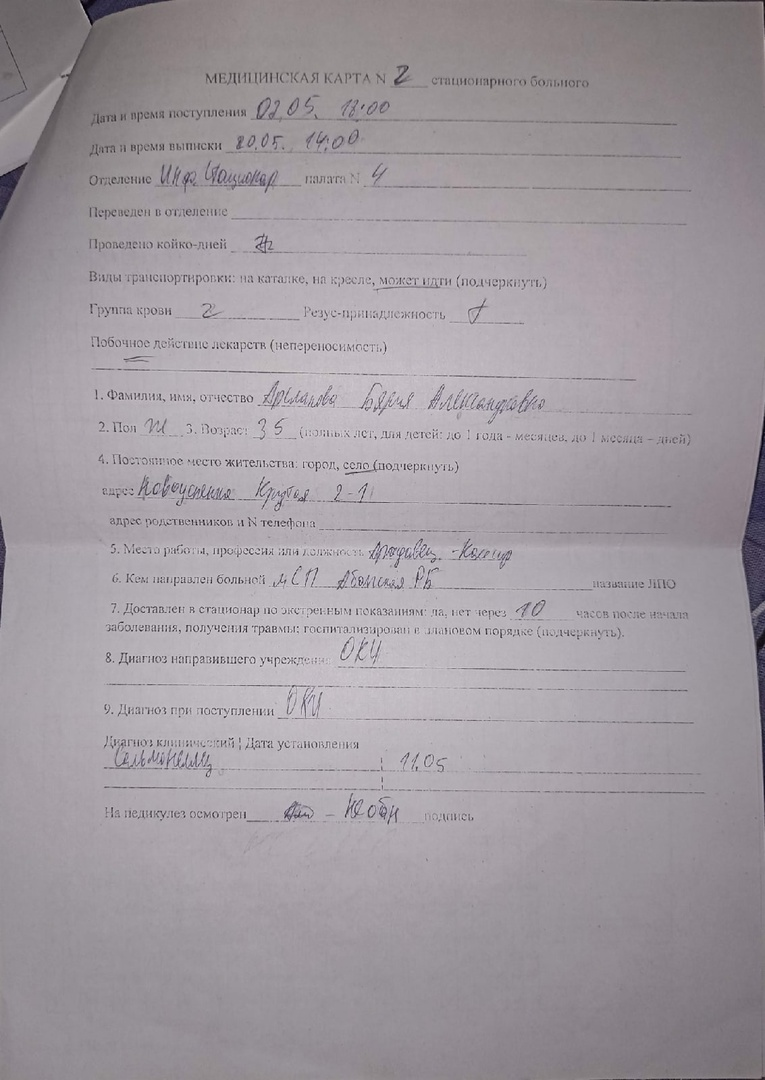 МЕДИЦИНСКАЯ КАРТА N 2 стационарного больного
Дата и время поступления 02.05. 18:00
Дата и время выписки 20.05. 14:00
Отделение Инф. Стационар палата N 4
Переведен в отделение
Проведено койко-дней
Виды транспортировки: на каталке, на кресле, может идти (подчеркнуть)
Группа крови 2 Резус-принадлежность
Побочное действие лекарств (непереносимость)
1. Фамилия, имя, отчество Арсланова Александровна
2. Пол ж 3. Возраст 35 (полных лет, для детей: до 1 года - месяцев, до 1 месяца – дней)
4. Постоянное место жительства: город, село (подчеркнуть)
адрес Новоуспенка Крутая 2-1
адрес родственников и N телефона
5. Место работы, профессия или должность продавец-кассир
6. Кем направлен больной СП Абанская РБ название ЛПО
7. Доставлен в стационар по экстренным показаниям: да, нет через 10 часов после начала
заболевания, получения травмы; госпитализирован в плановом порядке (подчеркнуть).
8. Диагноз направившего учреждения ОКИ
9. Диагноз при поступлении ОКИ
Диагноз клинический | Дата установления
11.05
На педикулез осмотрен – не обн подпись